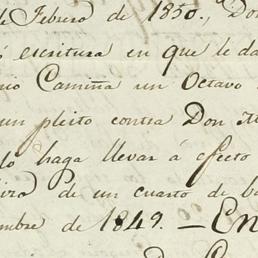 de Febrero de 1850., Don
escritura en que le da
Camiña un Octavo
un pleito contra Don M
lo haga llevar á efecto
de un cuarto de ba
mbre de 1849. — En